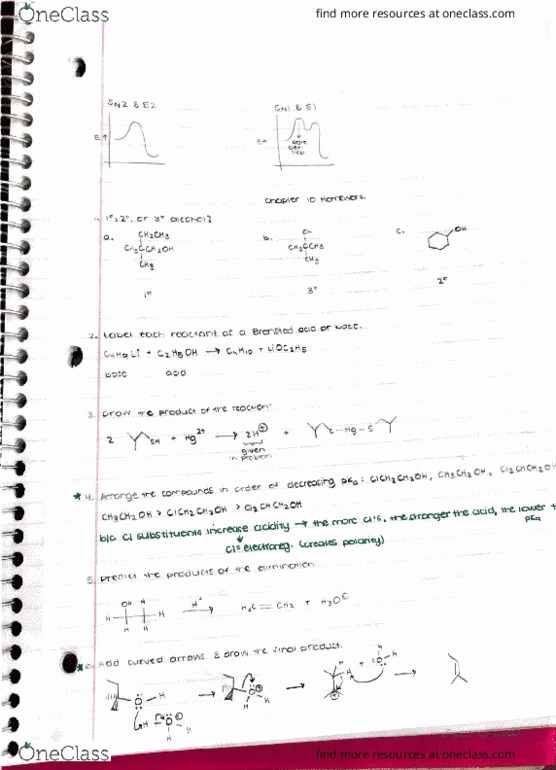 OneClass
find more resources at oneclass.com
SN2 & E2
SN1 & E1
E↑
Chapter 10 Homework
1. 1°, 2°, or 3° alcohol?
a.
CH2CH3
CH3CCH2OH
CH3
1°
b.
OH
CH3CCH3
CH3
3°
c.
OH
2°
2. Label each reactant as a Brønsted acid or base.
C4H9Li + C2H5OH → C4H10 + LiOC2H5
base acid
3. Draw the product of the reaction:
2 SH + Hg2+ → 2H⊕ + S-Hg-S
given
in problem
★ 4. Arrange the compounds in order of decreasing pKa: ClCH2CH2OH, CH3CH2OH, Cl2CHCH2OH
CH3CH2OH > ClCH2CH2OH > Cl2CHCH2OH
b/c Cl substituents increase acidity → the more Cl's, the stronger the acid, the lower
pKa
Cl = electroneg. (creates polarity)
5. Predict the products of the elimination.
OH H
H H
H H
H+
H2C=CH2 + H2O
★ 6. Add curved arrows & draw the final product.
OneClass
find more resources at oneclass.com